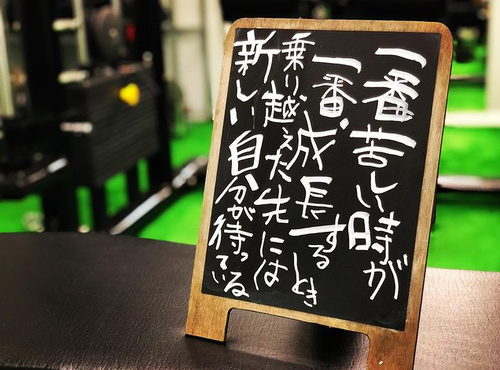 一番苦しい時が
一番、成長するとき
乗り越えた先には
新しい自分が待っている